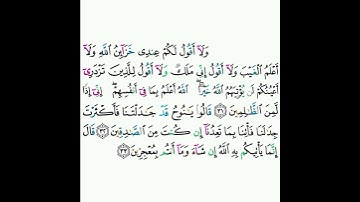 وَلَآ أَقُولُ لَكُمْ عِندِى خَزَآئِنُ ٱللَّهِ وَلَآ
أَعْلَمُ ٱلْغَيْبَ وَلَآ أَقُولُ إِنِّى مَلَكٌ وَلَآ أَقُولُ لِلَّذِينَ تَزْدَرِىٓ
أَعْيُنُكُمْ لَن يُؤْتِيَهُمُ ٱللَّهُ خَيْرًا ۖ ٱللَّهُ أَعْلَمُ بِمَا فِىٓ أَنفُسِهِمْ ۖ إِنِّىٓ إِذًا
لَّمِنَ ٱلظَّـٰلِمِينَ ٣١ قَالُوا۟ يَـٰنُوحُ قَدْ جَـٰدَلْتَنَا فَأَكْثَرْتَ
جِدَٰلَنَا فَأْتِنَا بِمَا تَعِدُنَآ إِن كُنتَ مِنَ ٱلصَّـٰدِقِينَ ٣٢ قَالَ
إِنَّمَا يَأْتِيكُم بِهِ ٱللَّهُ إِن شَآءَ وَمَآ أَنتُم بِمُعْجِزِينَ ٣٣